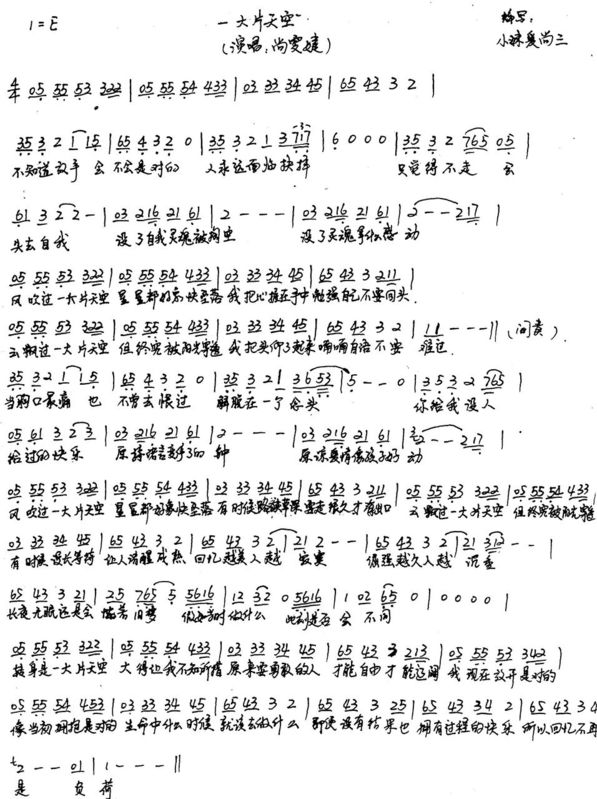 1=E
一大片天空
(演唱:尚雯婕)
编写:
小球爱尚三
4/4 05 55 53 322 | 05 55 54 433 | 03 33 34 45 | 65 43 3 2 |
35 3 2 1 15 | 65 4 3 2 0 | 35 3 2 1 3 717 | 6 0 0 0 | 35 3 2 765 05 |
不知道放手 会 不会是对的 人永远面临抉择 只觉得不走 会
61 3 2 2 - | 03 216 21 61 | 2 - - - | 03 216 21 61 | 2 - - 217 |
失去自我 没了自我灵魂被掏空 没了灵魂拿什么感 动
05 55 53 322 | 05 55 54 433 | 03 33 34 45 | 65 43 3 211 |
风吹过一大片天空 星星都好像快坠落 我把心握在手中 勉强自己不要回头
05 55 53 322 | 05 55 54 433 | 03 33 34 45 | 65 43 3 2 | 11 - - - || (间奏)
云飘过一大片天空 但终究被阳光穿透 我把头仰了起来 喃喃自语不要 难过
35 3 2 1 1 5 | 65 4 3 2 0 | 35 3 2 1 36 53 | 5 - - 0 | 3 5 3 2 765 |
当胸口最痛 也 不曾去恨过 解脱在一个念头 你给我 没人
05 61 3 2 3 | 03 216 21 61 | 2 - - - | 03 216 21 61 | 2 - - 217 |
给过的快乐 原谅 种 原谅爱情像孩子好 动
05 55 53 322 | 05 55 54 433 | 03 33 34 45 | 65 43 3 211 | 05 55 53 322 | 05 55 54 433
风吹过一大片天空 星星都好像快坠落 有时候 很久才有出口 云飘过一大片天空 但终究被阳光穿透
03 33 34 45 | 65 43 3 2 | 65 43 3 2 | 21 2 - - | 65 43 3 2 | 21 312 - - |
有时候漫长等待 让人清醒成熟 回忆越美人越 寂寞 倔强越久人越 沉重
65 43 3 21 | 25 765 5 5616 | 12 32 0 5616 | 1 02 65 0 | 0 0 0 0 |
长夜无眠还是会 旧梦 做什么 此刻是否 会 不同
05 55 53 322 | 05 55 54 433 | 03 33 34 45 | 65 43 3 213 | 05 55 53 342 |
转身是一大片天空 大得让我不知所措 原来要勇敢的人 才能自由才能辽阔 我现在放开是对的
05 55 54 453 | 03 33 34 45 | 65 43 3 2 | 65 43 3 25 | 65 43 34 2 | 65 43 34
像当初拥抱是对的 生命中什么时候 就该去做什么 即使没有结果也 拥有过程的快乐 所以回忆不再
2 - - 01 | 1 - - - ||
是 负 荷